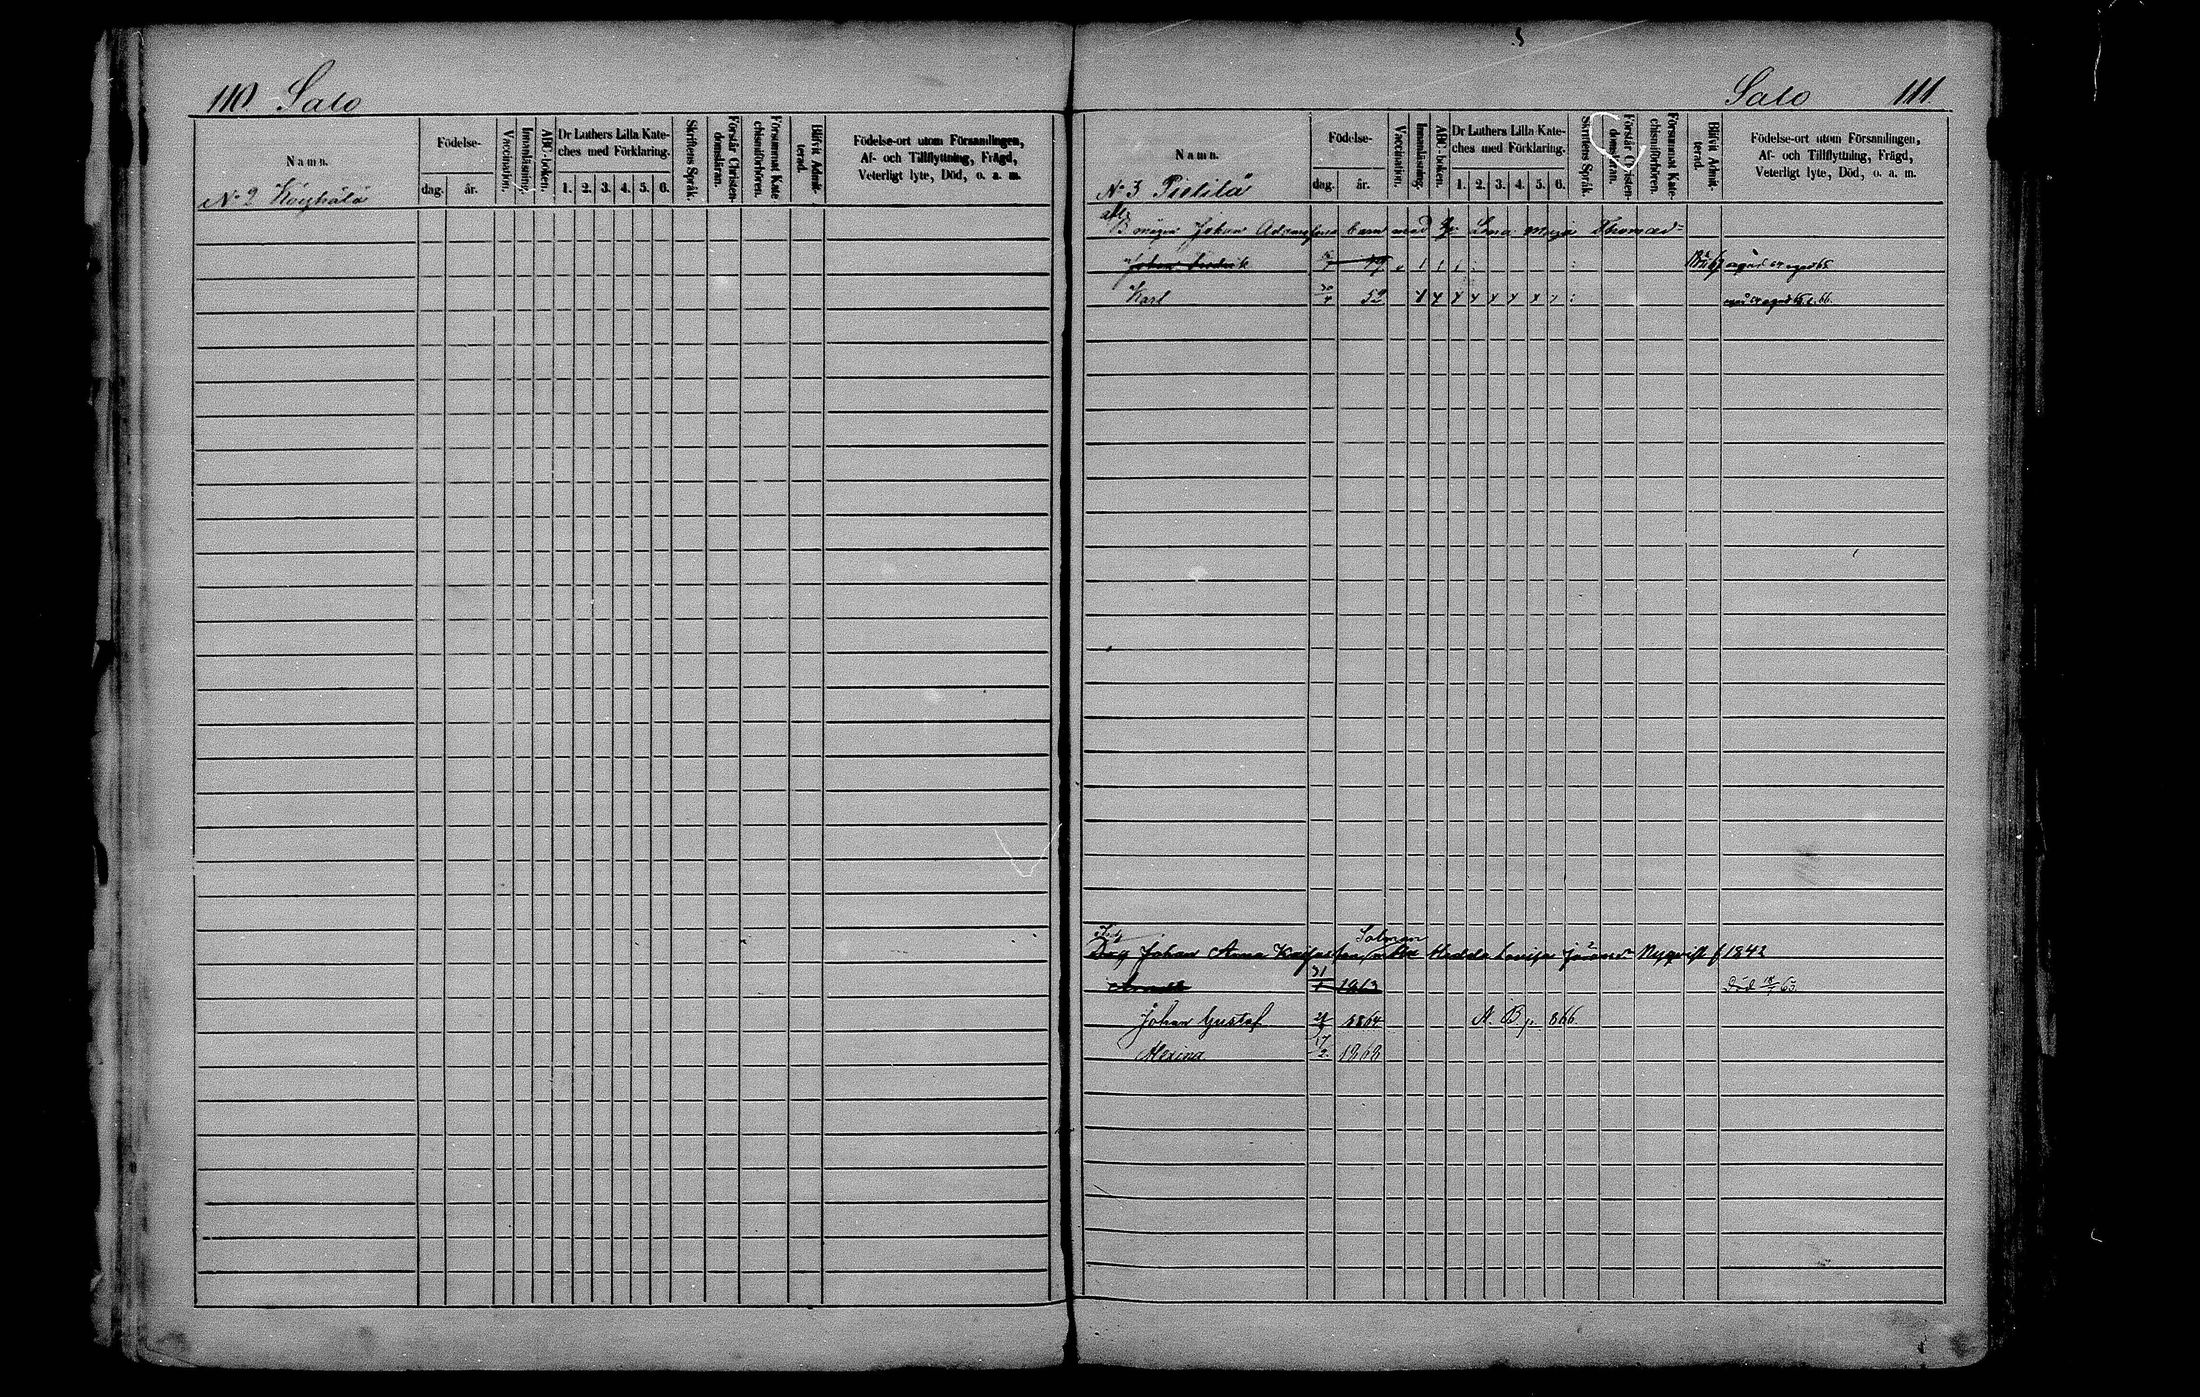 110 Salo
Namn.
Födelse-
dag. år.
Vaccination.
Innanläsning.
ABC-boken.
Dr Luthers Lilla Kate-
ches med Förklaring.
1. 2. 3. 4. 5. 6.
Skriftens Språk.
Förstår Christen-
domsläran.
Försummat Kate
chismiförhören.
Blifvit Admit-
terad.
Födelse-ort utom Församlingen,
Af- och Tillflyttning, Frägd,
Veterligt lyte, Död, o. a. m.
No 2
Salo 111
Namn.
Födelse-
dag. år.
Vaccination.
Innanläsning.
ABC-boken.
Dr Luthers Lilla Kate-
ches med Förklaring.
1. 2. 3. 4. 5. 6.
Skriftens Språk.
Förstår Christen-
domsläran.
Försummat Kate-
chismiförhören.
Blifvit Admit-
terad.
Födelse-ort utom Församlingen,
Af- och Tillflyttning, Frägd,
Veterligt lyte, Död, o. a. m.
No 3 Pietilä
Johan barn med Lena Maja
Johan Fredrik 49
Karl 30/4 52
Salomon
Johan Anna Hedda Lovisa Nyqvist f 1842
31/1 1863 Död
Johan Gustaf 1864 N. B. p. 866.
Alexina 17/2 1868